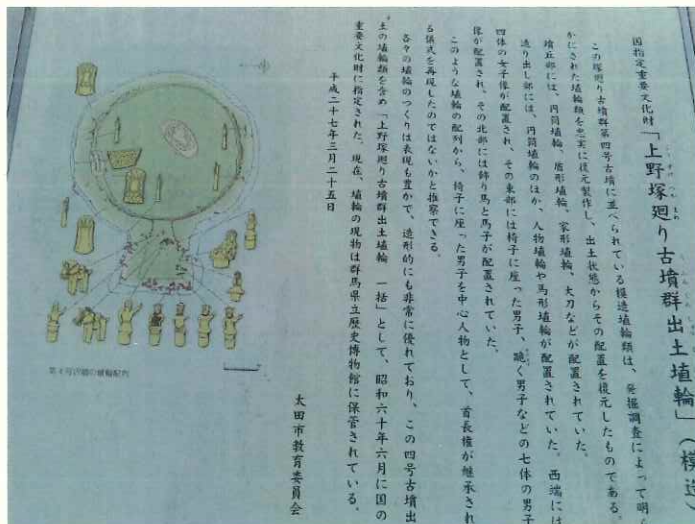 国指定重要文化財「上野塚廻り古墳群出土埴輪」（模造）
この塚廻り古墳群第四号古墳に並べられている模造埴輪類は、発掘調査によって明
らかにされた埴輪類を忠実に復元製作し、出土状態からその配置を復元したものである。
墳丘部には、円筒埴輪、盾形埴輪、家形埴輪、大刀などが配置されていた。
造り出し部には、円筒埴輪のほか、人物埴輪や馬形埴輪が配置されていた。西端には
四体の女子像が配置され、その東部には椅子に座った男子、跪く男子などの七体の男子
像が配置され、その北部には飾り馬と馬子が配置されていた。
このような埴輪の配列から、椅子に座った男子を中心人物として、首長権が継承され
る儀式を再現したのではないかと推察できる。
各々の埴輪のつくりは表現も豊かで、造形的にも非常に優れており、この四号古墳出
土の埴輪類を含め「上野塚廻り古墳群出土埴輪　一括」として、昭和六十年六月に国の
重要文化財に指定された。現在、埴輪の現物は群馬県立歴史博物館に保管されている。
平成二十七年三月二十五日
太田市教育委員会
第4号古墳の埴輪配列